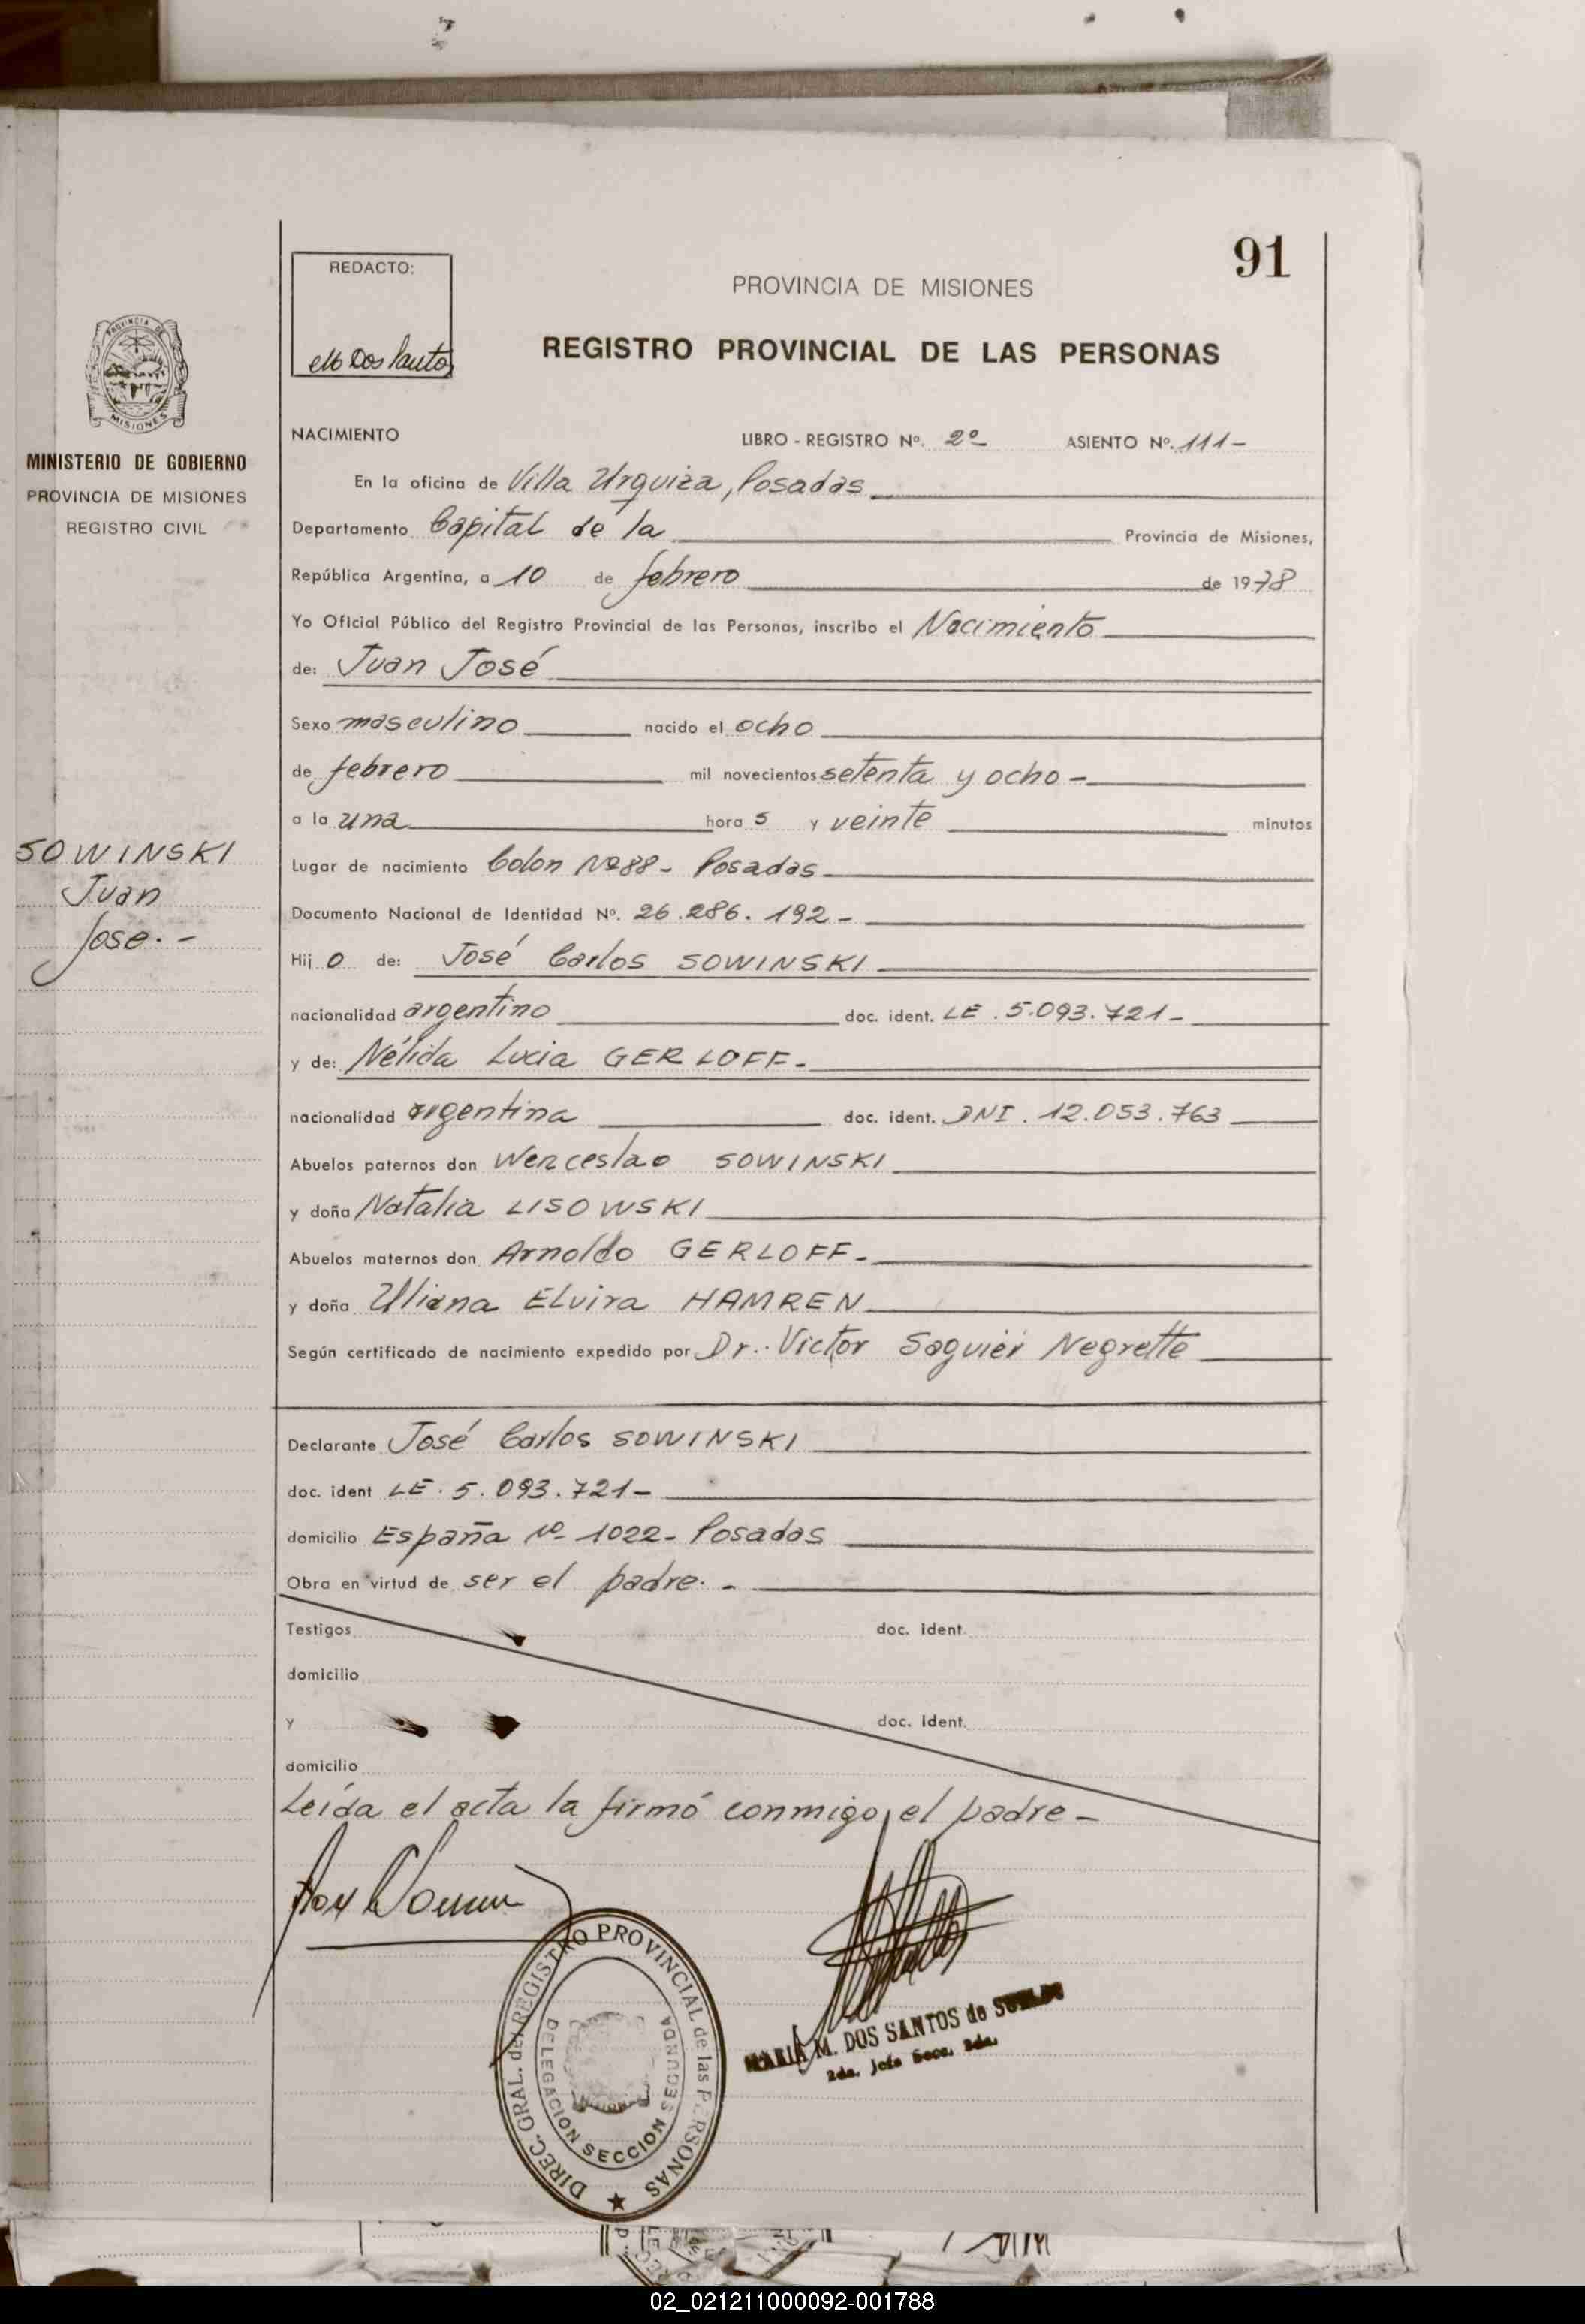 91
REDACTO:
Dos Santos
PROVINCIA DE MISIONES
REGISTRO PROVINCIAL DE LAS PERSONAS
PROVINCIA DE
MISIONES
MINISTERIO DE GOBIERNO
PROVINCIA DE MISIONES
REGISTRO CIVIL
SOWINSKI
Juan
José.-
NACIMIENTO LIBRO - REGISTRO Nº. 2º ASIENTO Nº. 111-
En la oficina de Villa Urquiza, Posadas
Departamento Capital de la Provincia de Misiones,
República Argentina, a 10 de febrero de 1978
Yo Oficial Público del Registro Provincial de las Personas, inscribo el Nacimiento
de: Juan José
Sexo masculino nacido el ocho
de febrero mil novecientos setenta y ocho -
a la una hora s y veinte minutos
Lugar de nacimiento Colon Nº 88 - Posadas
Documento Nacional de Identidad Nº. 26.286.192 -
Hij o de: José Carlos SOWINSKI
nacionalidad argentino doc. ident. LE. 5.093.721 -
y de: Nélida Lucia GERLOFF -
nacionalidad argentina doc. ident. DNI. 12.053.763
Abuelos paternos don Wenceslao SOWINSKI
y doña Natalia LISOWSKI
Abuelos maternos don Arnoldo GERLOFF -
y doña Uliana Elvira HAMREN
Según certificado de nacimiento expedido por Dr. Victor Saguier Negrette
Declarante José Carlos SOWINSKI
doc. ident LE. 5.093.721 -
domicilio España Nº 1022 - Posadas
Obra en virtud de ser el padre. -
Testigos doc. ident.
domicilio
y doc. ident.
domicilio
Leída el acta la firmó conmigo, el padre -
DIREC. GRAL. del REGISTRO PROVINCIAL de las PERSONAS
DELEGACION SECCION SEGUNDA
MARIA M. DOS SANTOS de
2da. Jefe Secc. 2da.
02_021211000092-001788